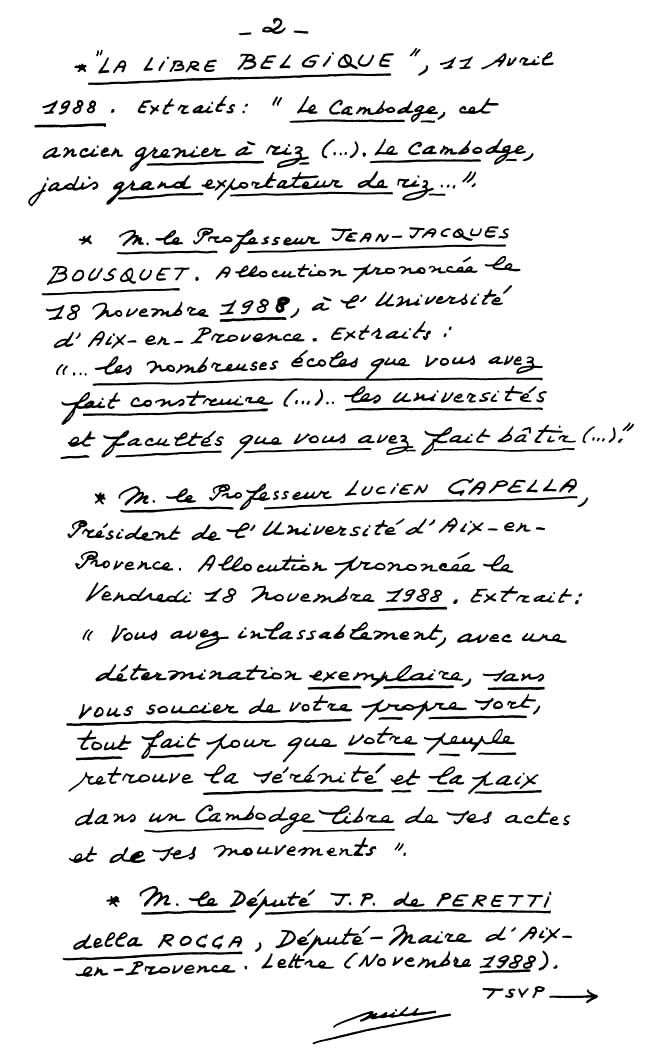 - 2 -
* "LA LIBRE BELGIQUE", 11 Avril
1988. Extraits: " Le Cambodge, cet
ancien grenier à riz (...). Le Cambodge,
jadis grand exportateur de riz...".
* M. le Professeur JEAN-JACQUES
BOUSQUET. Allocution prononcée le
18 Novembre 1988, à l'Université
d'Aix-en-Provence. Extraits:
"... les nombreuses écoles que vous avez
fait construire (...).. les universités
et facultés que vous avez fait bâtir (...)."
* M. le Professeur LUCIEN CAPELLA,
Président de l'Université d'Aix-en-
Provence. Allocution prononcée le
Vendredi 18 Novembre 1988. Extrait:
" Vous avez inlassablement, avec une
détermination exemplaire, sans
vous soucier de votre propre sort,
tout fait pour que votre peuple
retrouve la sérénité et la paix
dans un Cambodge libre de ses actes
et de ses mouvements ".
* M. le Député J.P. de PERETTI
della ROCCA, Député-Maire d'Aix-
en-Provence. Lettre (Novembre 1988).
TSVP →